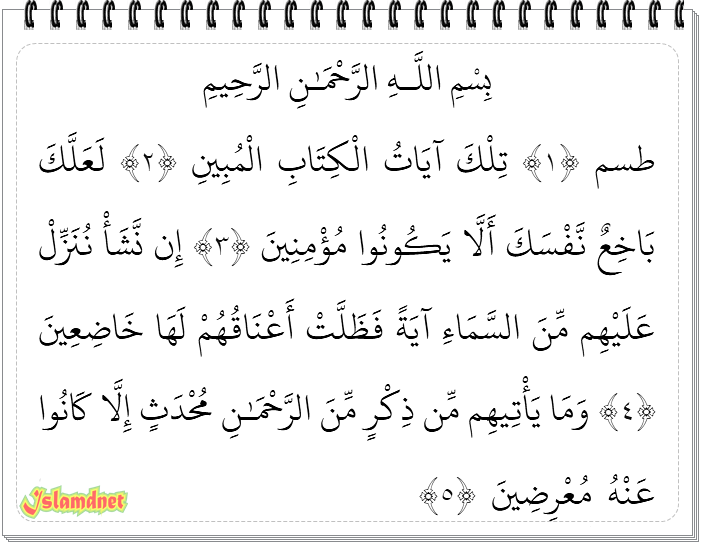 بِسْمِ اللَّـهِ الرَّحْمَـٰنِ الرَّحِيمِ
طسم ﴿١﴾ تِلْكَ آيَاتُ الْكِتَابِ الْمُبِينِ ﴿٢﴾ لَعَلَّكَ
بَاخِعٌ نَّفْسَكَ أَلَّا يَكُونُوا مُؤْمِنِينَ ﴿٣﴾ إِن نَّشَأْ نُنَزِّلْ
عَلَيْهِم مِّنَ السَّمَاءِ آيَةً فَظَلَّتْ أَعْنَاقُهُمْ لَهَا خَاضِعِينَ
﴿٤﴾ وَمَا يَأْتِيهِم مِّن ذِكْرٍ مِّنَ الرَّحْمَـٰنِ مُحْدَثٍ إِلَّا كَانُوا
عَنْهُ مُعْرِضِينَ ﴿٥﴾
Islamdnet